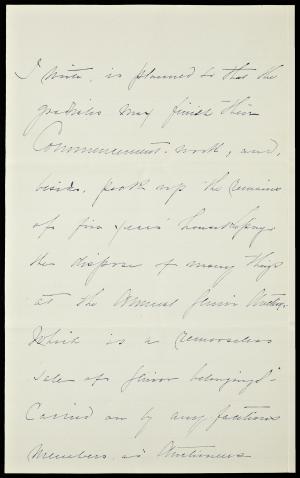 I write, is planned so that the
graduates may finish their
Commencement work, and,
besides, pack up the remains
of five years' housekeeping
the dispose of many things
at the Annual Senior Auction
Which is a remorseless
sale of Senior belongings
Carried on by any facetious
members, as Auctioneers